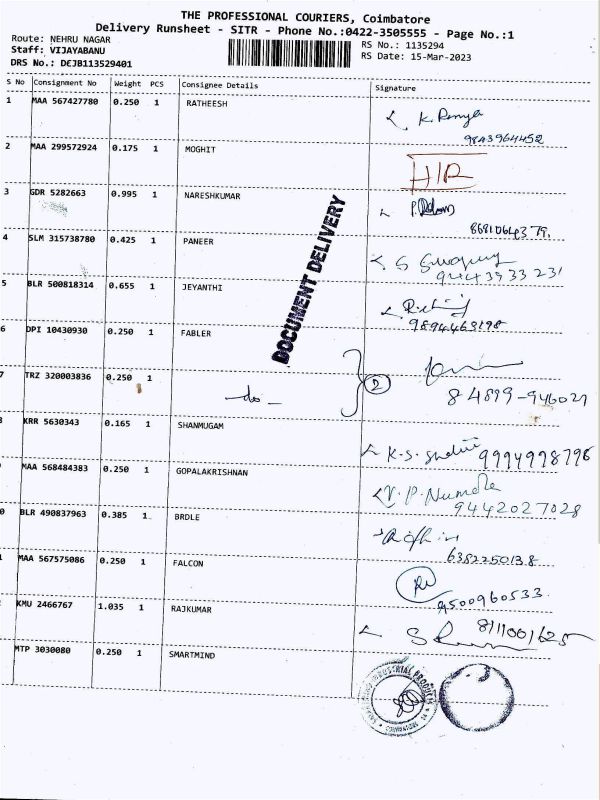 THE PROFESSIONAL COURIERS, Coimbatore
Delivery Runsheet - SITR - Phone No.:0422-3505555 - Page No.:1
Route: NEHRU NAGAR
Staff: VIJAYABANU
DRS No.: DEJB113529401
RS No.: 1135294
RS Date: 15-Mar-2023
S No Consignment No Weight PCS Consignee Details Signature
1 MAA 567427780 0.250 1 RATHEESH K. Ramya
9843964452
2 MAA 299572924 0.175 1 MOGHIT H/R
3 GDR 5282663 0.995 1 NARESHKUMAR
8681064379.
4 SLM 315738780 0.425 1 PANEER
9444393323 1
5 BLR 500818314 0.655 1 JEYANTHI
9894463198
6 DPI 10430930 0.250 1 FABLER
7 TRZ 320003836 0.250 1 -do- 2
84899-946021
KRR 5630343 0.165 1 SHANMUGAM K.S. 9994998796
MAA 568484383 0.250 1 GOPALAKRISHNAN V.P. Nirmala
9442027028
0 BLR 490837963 0.385 1 BRDLE
6382250138
MAA 567575086 0.250 1 FALCON
9500960533.
KMU 2466767 1.035 1 RAJKUMAR 8111001625
MTP 3030080 0.250 1 SMARTMIND
DOCUMENT DELIVERY